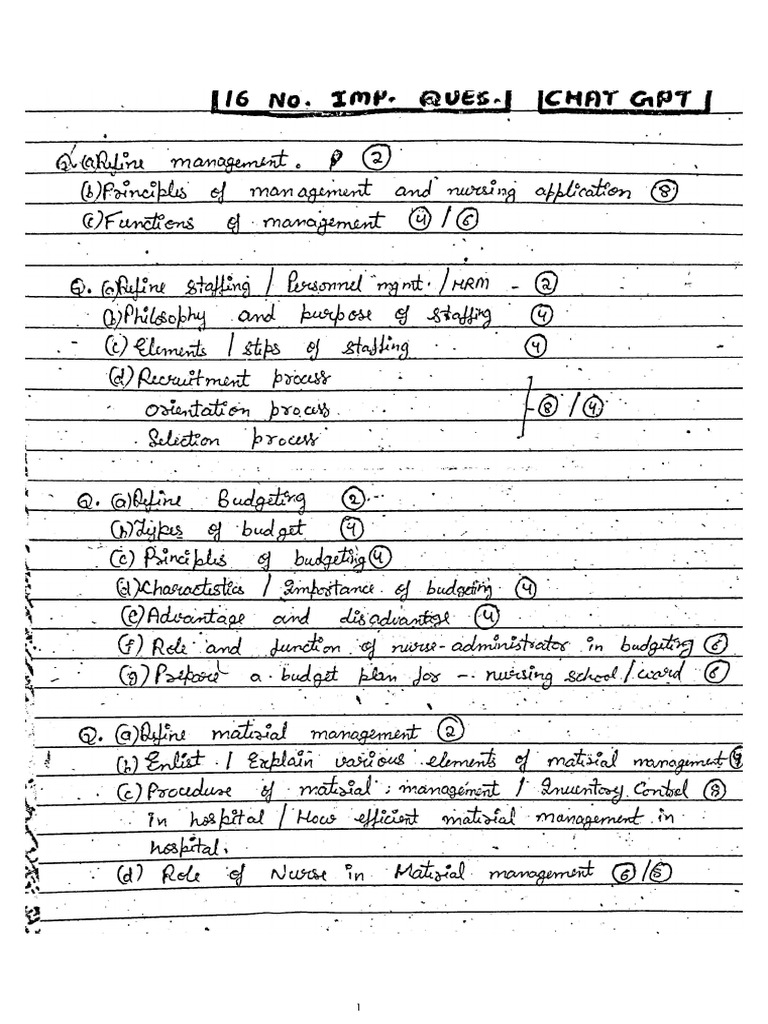 16 NO. IMP. QUES. CHAT GPT
Q. (a) Define management. (2)
(b) Principles of management and nursing application (8)
(c) Functions of management (4) / (6)
Q. (a) Define staffing / Personnel mgmt. / HRM - (2)
(b) Philosophy and purpose of staffing (4)
(c) Elements / steps of staffing (4)
(d) Recruitment process
orientation process - (8) / (4)
Selection process
Q. (a) Define Budgeting (2)
(b) Types of budget (4)
(c) Principles of budgeting (4)
(d) Charactestics / Importance of budgeting (4)
(e) Advantage and disadvantage (4)
(f) Role and function of nurse-administrator in budgeting (6)
(g) Prepare a budget plan for - nursing school / ward (6)
Q. (a) Define material management (2)
(b) Enlist / Explain various elements of material management
(c) Procedure of material management / Inventory Control (8)
in hospital / How efficient material management in
hospital.
(d) Role of Nurse in Material management (6) / (8)
1